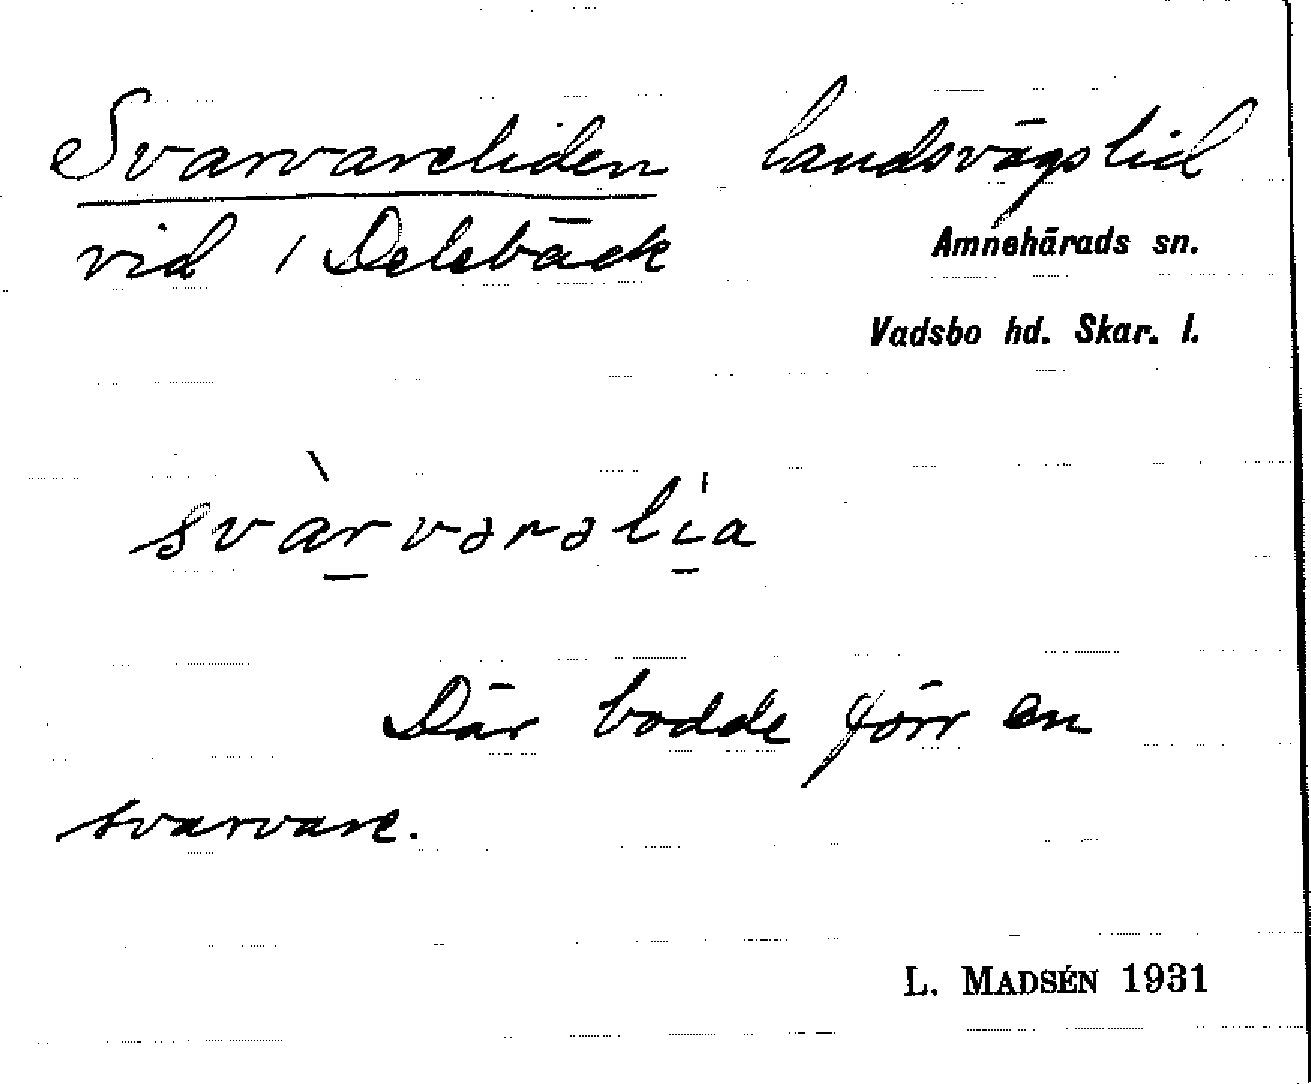 Svarvareliden landsvägslid
vid / Delebäck
Amnehärads sn.
Vadsbo hd. Skar. l.
svàrvərəlía
Där bodde förr en
svarvare.
L. MADSÉN 1931